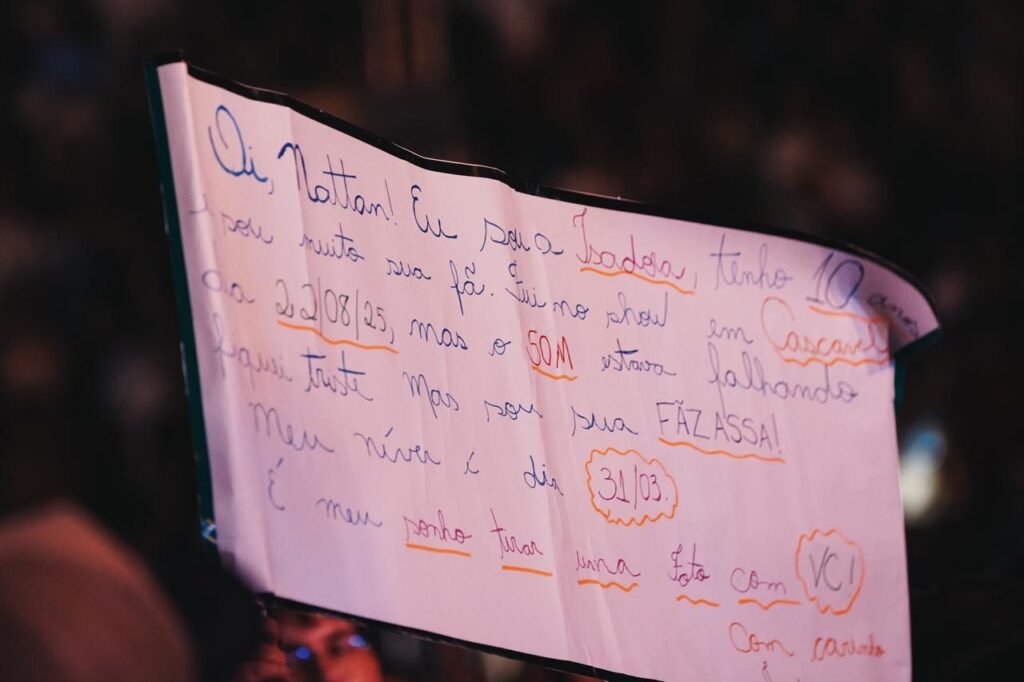 Oi, Nattan! Eu sou a Isadora, tenho 10 anos
e sou muito sua fã. Fui no show em Cascavel
da 22/08/25, mas o SOM estava falhando
fiquei triste. Mas sou sua FÃZASSA!
Meu níver é dia 31/03.
É meu sonho tirar uma foto com VC!
Com carinho